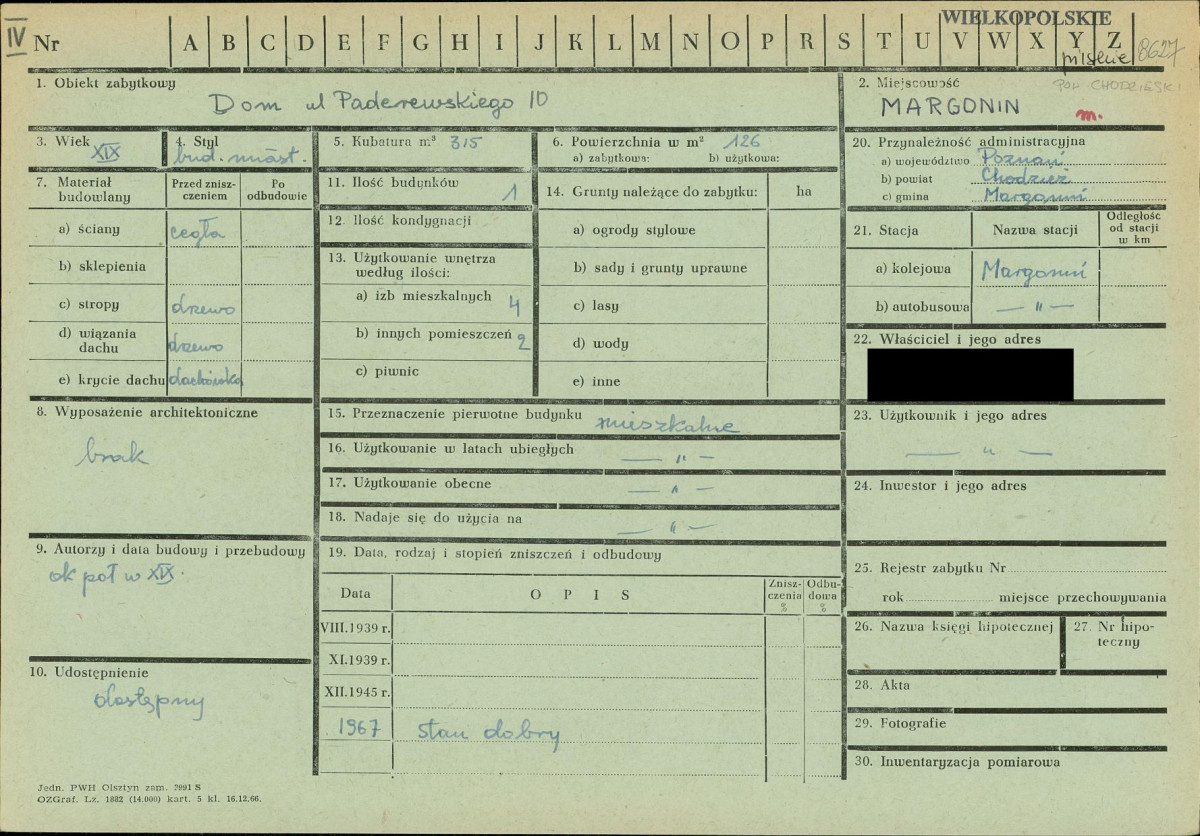 IV Nr A B C D E F G H I J K L M N O P R S T U V W X Y Z
WIELKOPOLSKIE
pilskie 8627
1. Obiekt zabytkowy
Dom ul Paderewskiego 10
2. Miejscowość POW. CHODZIESKI
MARGONIN m.
3. Wiek XIX
4. Styl bud. miast.
5. Kubatura m³ 315
6. Powierzchnia w m² 126
a) zabytkowa: b) użytkowa:
7. Materiał budowlany
Przed zniszczeniem
Po odbudowie
a) ściany cegła
b) sklepienia
c) stropy drzewo
d) wiązania dachu drzewo
e) krycie dachu dachówka
8. Wyposażenie architektoniczne
brak
9. Autorzy i data budowy i przebudowy
ok poł w XIX.
10. Udostępnienie
dostępny
11. Ilość budynków 1
12. Ilość kondygnacji
13. Użytkowanie wnętrza według ilości:
a) izb mieszkalnych 4
b) innych pomieszczeń 2
c) piwnic
14. Grunty należące do zabytku: ha
a) ogrody stylowe
b) sady i grunty uprawne
c) lasy
d) wody
e) inne
15. Przeznaczenie pierwotne budynku mieszkalne
16. Użytkowanie w latach ubiegłych — „ —
17. Użytkowanie obecne — „ —
18. Nadaje się do użycia na — „ —
19. Data, rodzaj i stopień zniszczeń i odbudowy
Data O P I S Zniszczenia % Odbudowa %
VIII.1939 r.
XI.1939 r.
XII.1945 r.
1967 stan dobry
20. Przynależność administracyjna
a) województwo Poznań
b) powiat Chodzież
c) gmina Margonin
21. Stacja Nazwa stacji Odległość od stacji w km
a) kolejowa Margonin
b) autobusowa — „ —
22. Właściciel i jego adres
23. Użytkownik i jego adres
— „ —
24. Inwestor i jego adres
25. Rejestr zabytku Nr
rok miejsce przechowywania
26. Nazwa księgi hipotecznej
27. Nr hipoteczny
28. Akta
29. Fotografie
30. Inwentaryzacja pomiarowa
Jedn. PWH Olsztyn zam. 2991 S
OZGraf. Lz. 1882 (14.000) kart. 5 kl. 16.12.66.